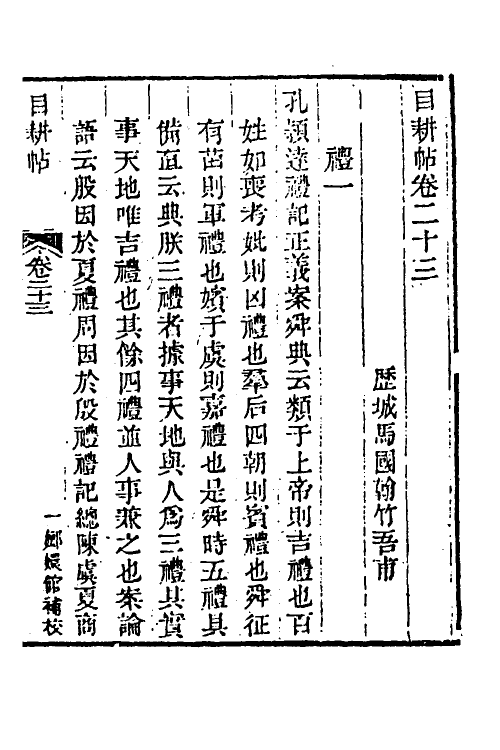 目耕帖卷二十三
歷城馬國翰竹吾甫
禮一
孔穎達禮記正義案舜典云類于上帝則吉禮也百
姓如喪考妣則凶禮也羣后四朝則賓禮也舜征
有苗則軍禮也嬪于虞則嘉禮也是舜時五禮具
備直云典朕三禮者據事天地與人爲三禮其實
事天地唯吉禮也其餘四禮並人事兼之也案論
語云殷因於夏禮周因於殷禮禮記總陳虞夏商
目耕帖
卷二十三
一
嫏嬛館補校